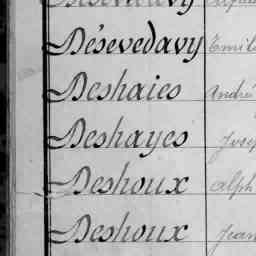 Désevedavy Emile
Deshaies André
Deshayes
Deshoux Alph
Deshoux Jean